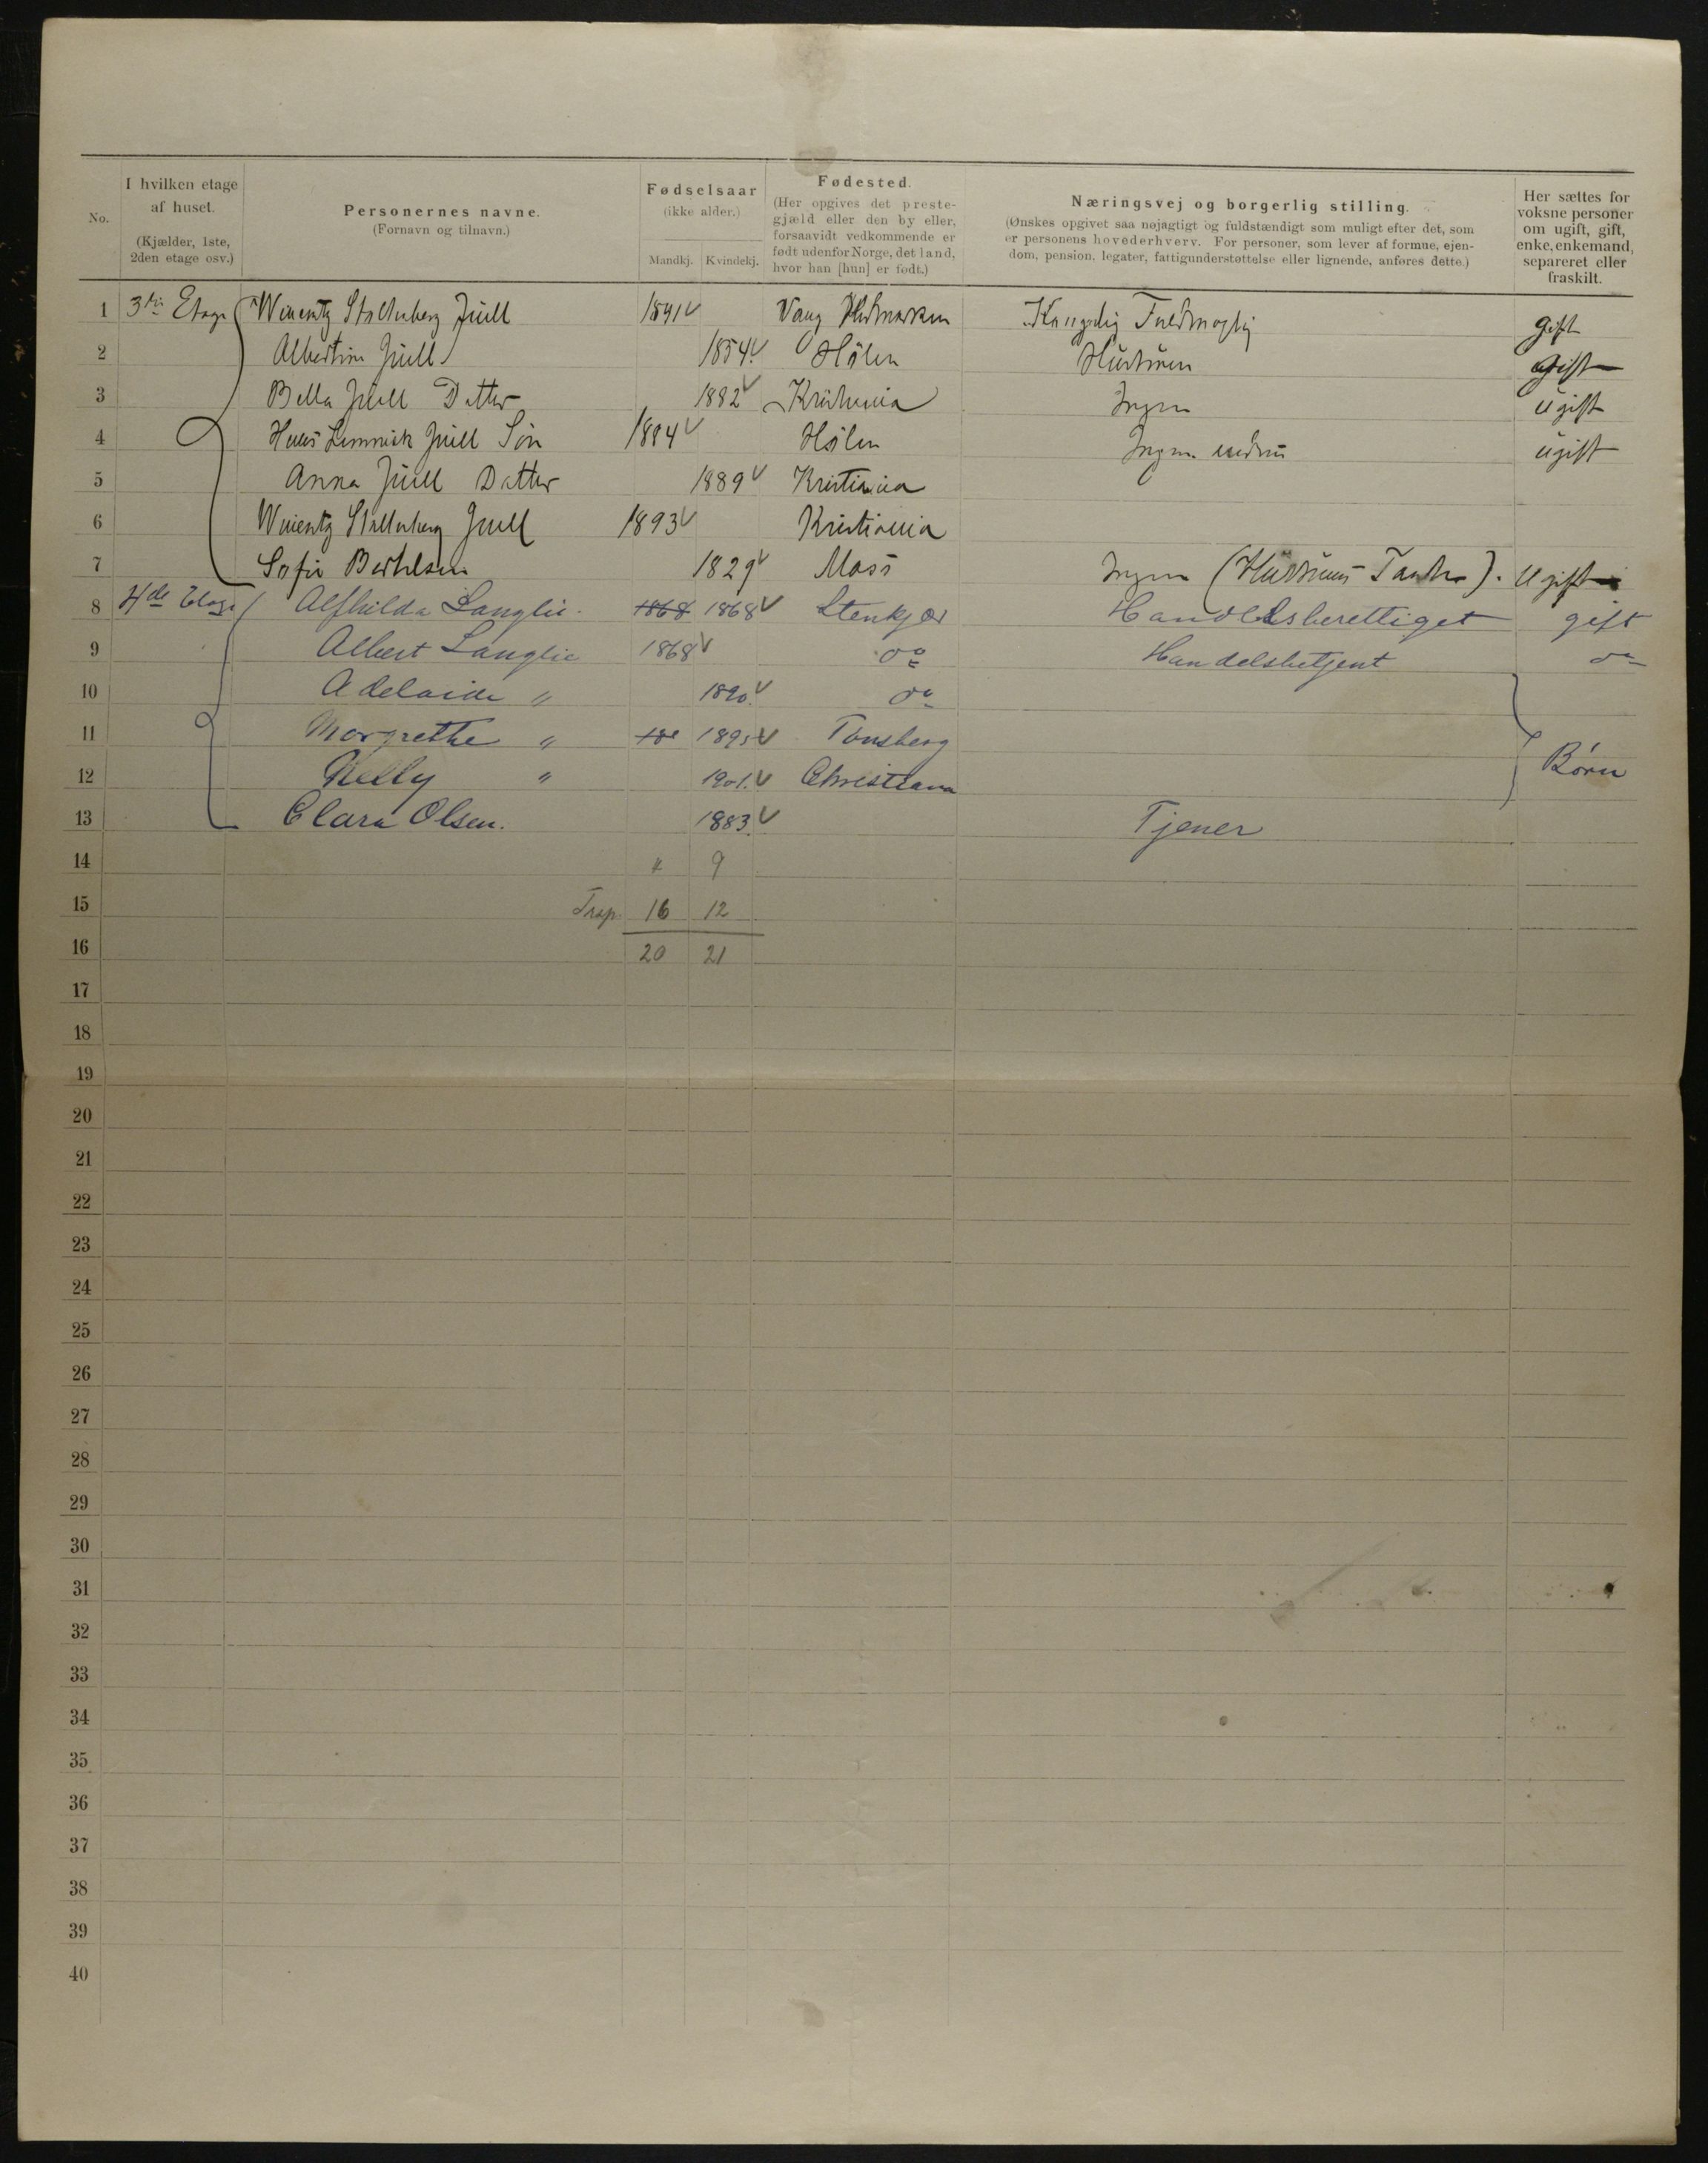 No.
I hvilken etage af huset.
(Kjælder, 1ste, 2den etage osv.)
Personernes navne.
(Fornavn og tilnavn.)
Fødselsaar
(ikke alder.)
Mandkj. Kvindekj.
Fødested.
(Her opgives det preste-
gjæld eller den by eller,
forsaavidt vedkommende er
født udenfor Norge, det land,
hvor han [hun] er født.)
Næringsvej og borgerlig stilling.
(Ønskes opgivet saa nøjagtigt og fuldstændigt som muligt efter det, som
er personens hovederhverv. For personer, som lever af formue, ejen-
dom, pension, legater, fattigunderstøttelse eller lignende, anføres dette.)
Her sættes for
voksne personer
om ugift, gift,
enke, enkemand,
separeret eller
fraskilt.
1 3die Etage Winentz Stoltenberg Juell Vang Hedmarken Fuldmægtig gift
2 Albertine Juell 1854 Hölen Hustruen Gift
3 Bella Juell Datter 1882 Kristiania Ingen Ugift
4 Juell Sön 1884 Hölen Ingen ugift
5 Anna Juell Datter 1889 Kristiania
6 Winentz Stoltenberg Juell 1893 Kristiania
7 Sofie Berthelsen 1829 Moss Ingen (Hustruens Tante). Ugift
8 4de Etage Alfhilda Langlie. 1868 1868 Stenkjær Handelsberettiget gift
9 Albert Langlie 1868 do Handelsbetjent do
10 Adelaide " 1890. do
11 Margrethe " 18 1895 Tønsberg
12 Nelly " 1901. Christiania Børn
13 Clara Olsen. 1883. Tjener
14 4 9
15 Trsp. 16 12
16 20 21
17
18
19
20
21
22
23
24
25
26
27
28
29
30
31
32
33
34
35
36
37
38
39
40